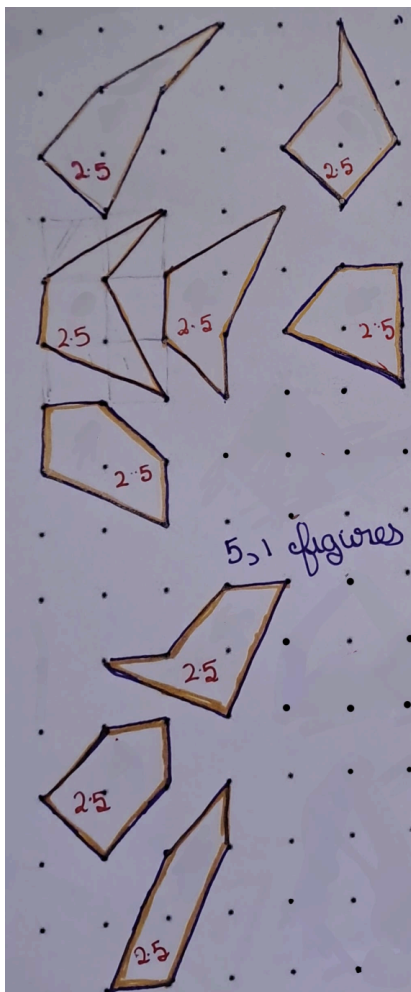 2.5
2.5
2.5
2.5
2.5
2.5
5,1 figures
2.5
2.5
2.5